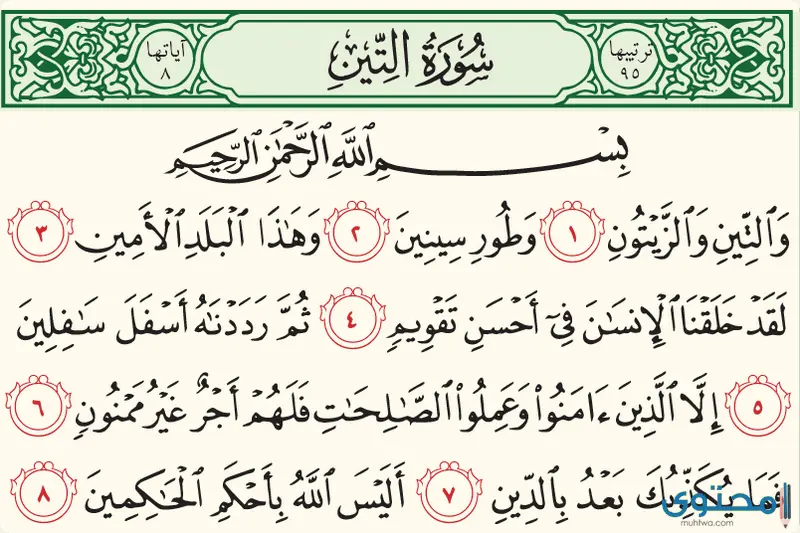 ترتيبها ٩٥
سُورَةُ التِّينِ
آياتها ٨
بِسْمِ ٱللَّهِ ٱلرَّحْمَٰنِ ٱلرَّحِيمِ
وَٱلتِّينِ وَٱلزَّيْتُونِ ١ وَطُورِ سِينِينَ ٢ وَهَٰذَا ٱلْبَلَدِ ٱلْأَمِينِ ٣
لَقَدْ خَلَقْنَا ٱلْإِنسَٰنَ فِىٓ أَحْسَنِ تَقْوِيمٍ ٤ ثُمَّ رَدَدْنَٰهُ أَسْفَلَ سَٰفِلِينَ
٥ إِلَّا ٱلَّذِينَ ءَامَنُوا۟ وَعَمِلُوا۟ ٱلصَّٰلِحَٰتِ فَلَهُمْ أَجْرٌ غَيْرُ مَمْنُونٍ ٦
فَمَا يُكَذِّبُكَ بَعْدُ بِٱلدِّينِ ٧ أَلَيْسَ ٱللَّهُ بِأَحْكَمِ ٱلْحَٰكِمِينَ ٨
محتوى
muhtwa.com